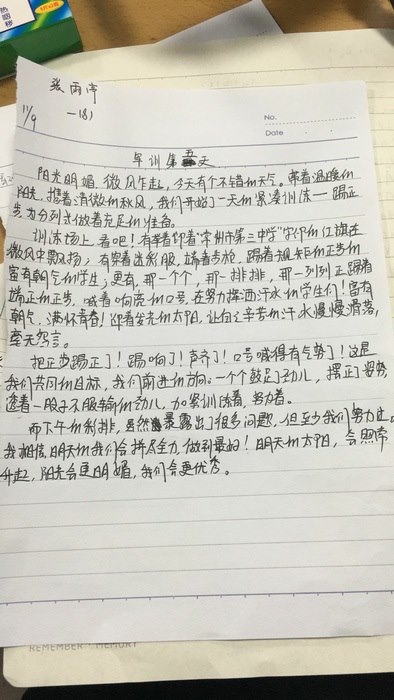 张雨湾
11/9
一(8)
No.
Date
军训第五天
阳光明媚,微风乍起,今天有个不错的天气。带着温暖的
阳光,携着清微的秋风,我们开始了一天的紧凑训练——踢正
步,为分列式做着充足的准备。
训练场上,看吧!有举着印着“常州市第三中学”字样的红旗在
微风中飘扬;有穿着迷彩服,端着步枪,踢着规矩的正步的
富有朝气的学生;更有,那一个个,那一排排,那一列列正踢着
端正的正步,喊着响亮的口号,在努力挥洒汗水的学生们!富有
朝气,满怀青春!迎着发光的太阳,让自己辛苦的汗水慢慢滑落,
毫无怨言。
把正步踢正了!踢响了!声齐了!口号喊得有气势了!这是
我们共同的目标,我们前进的方向。一个个鼓足了劲儿,摆正姿势,
透着一股子不服输的劲儿,加紧训练着,努力着。
而下午的彩排,虽然暴露出了很多问题,但至少我们努力过。
我相信,明天的我们会拼尽全力,做到最好!明天的太阳,会照常
升起,阳光会更明媚,我们会更优秀。
REMEMBER MEMORY